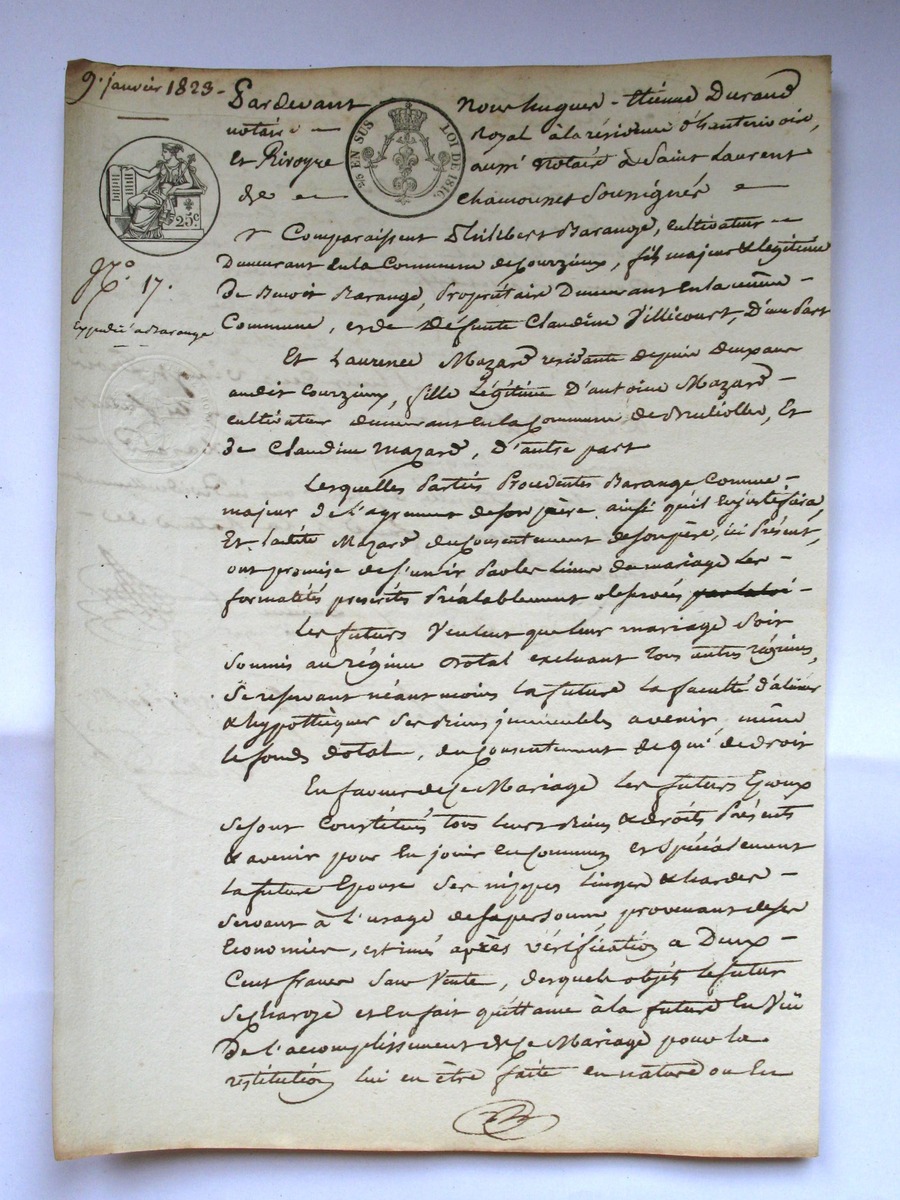 9. janvier 1823 -
Pardevant Nous hugues - étienne Durand
notaire - Royal à la résidence d'hauterivoire,
et Rivoyre aussi notaire à Saint Laurent
de - chamousset Soussignés -
25 EN SUS LOI DE 1816
25c.
N.o 17.
Expedié a Barange
Comparaissent Philibert Barange, cultivateur -
Demeurant en la Commune de Courzieux, fils majeur & légitime
de Benoit Barange, Propriétaire Demeurant en la même
Commune, et de défunte Claudine Villicourt, D'une Part
Et Laurence Mazard residante depuis deux ans
audit Courzieux, fille Légitime D'antoine Mazard -
cultivateur demeurant en la Commune de Brullioles, Et
de Claudine Mazard, D'autre part
Lesquelles Parties Procedentes Barange Comme -
majeur de l'agrement de son père ainsi qu'il En justifiera,
Et ladite Mazard du Consentement de son père, ici Présent,
ont promise de s'unir Par les liens du mariage Les -
formalités prescrites Préalablement observées par la loi -
Les futurs Veulent que leur mariage Soit
Soumis au régime Dotal excluant tous autres régimes,
Se reservant néantmoins la future la faculté d'aliéner
& hypothèquer Ses Biens immeubles avenir même
le fonds dotal, du Consentement de qui de droit
En faveur de Ce Mariage Les futurs Epoux
Se sont Constitués tous leurs Biens & droits Présents
& avenir pour En jouir En Commun et Spécialement
la future Epouse Ses nippes linges & hardes -
Servant à l'usage de sa personne, provenant de ses
Economies, estimés après vérification a Deux -
Cent francs Sans Vente, desquels objets le futur
Se charge et en fait quittance à la future En Vüe
De l'accomplissement de Ce Mariage pour la
restitution lui en être faite en nature ou En